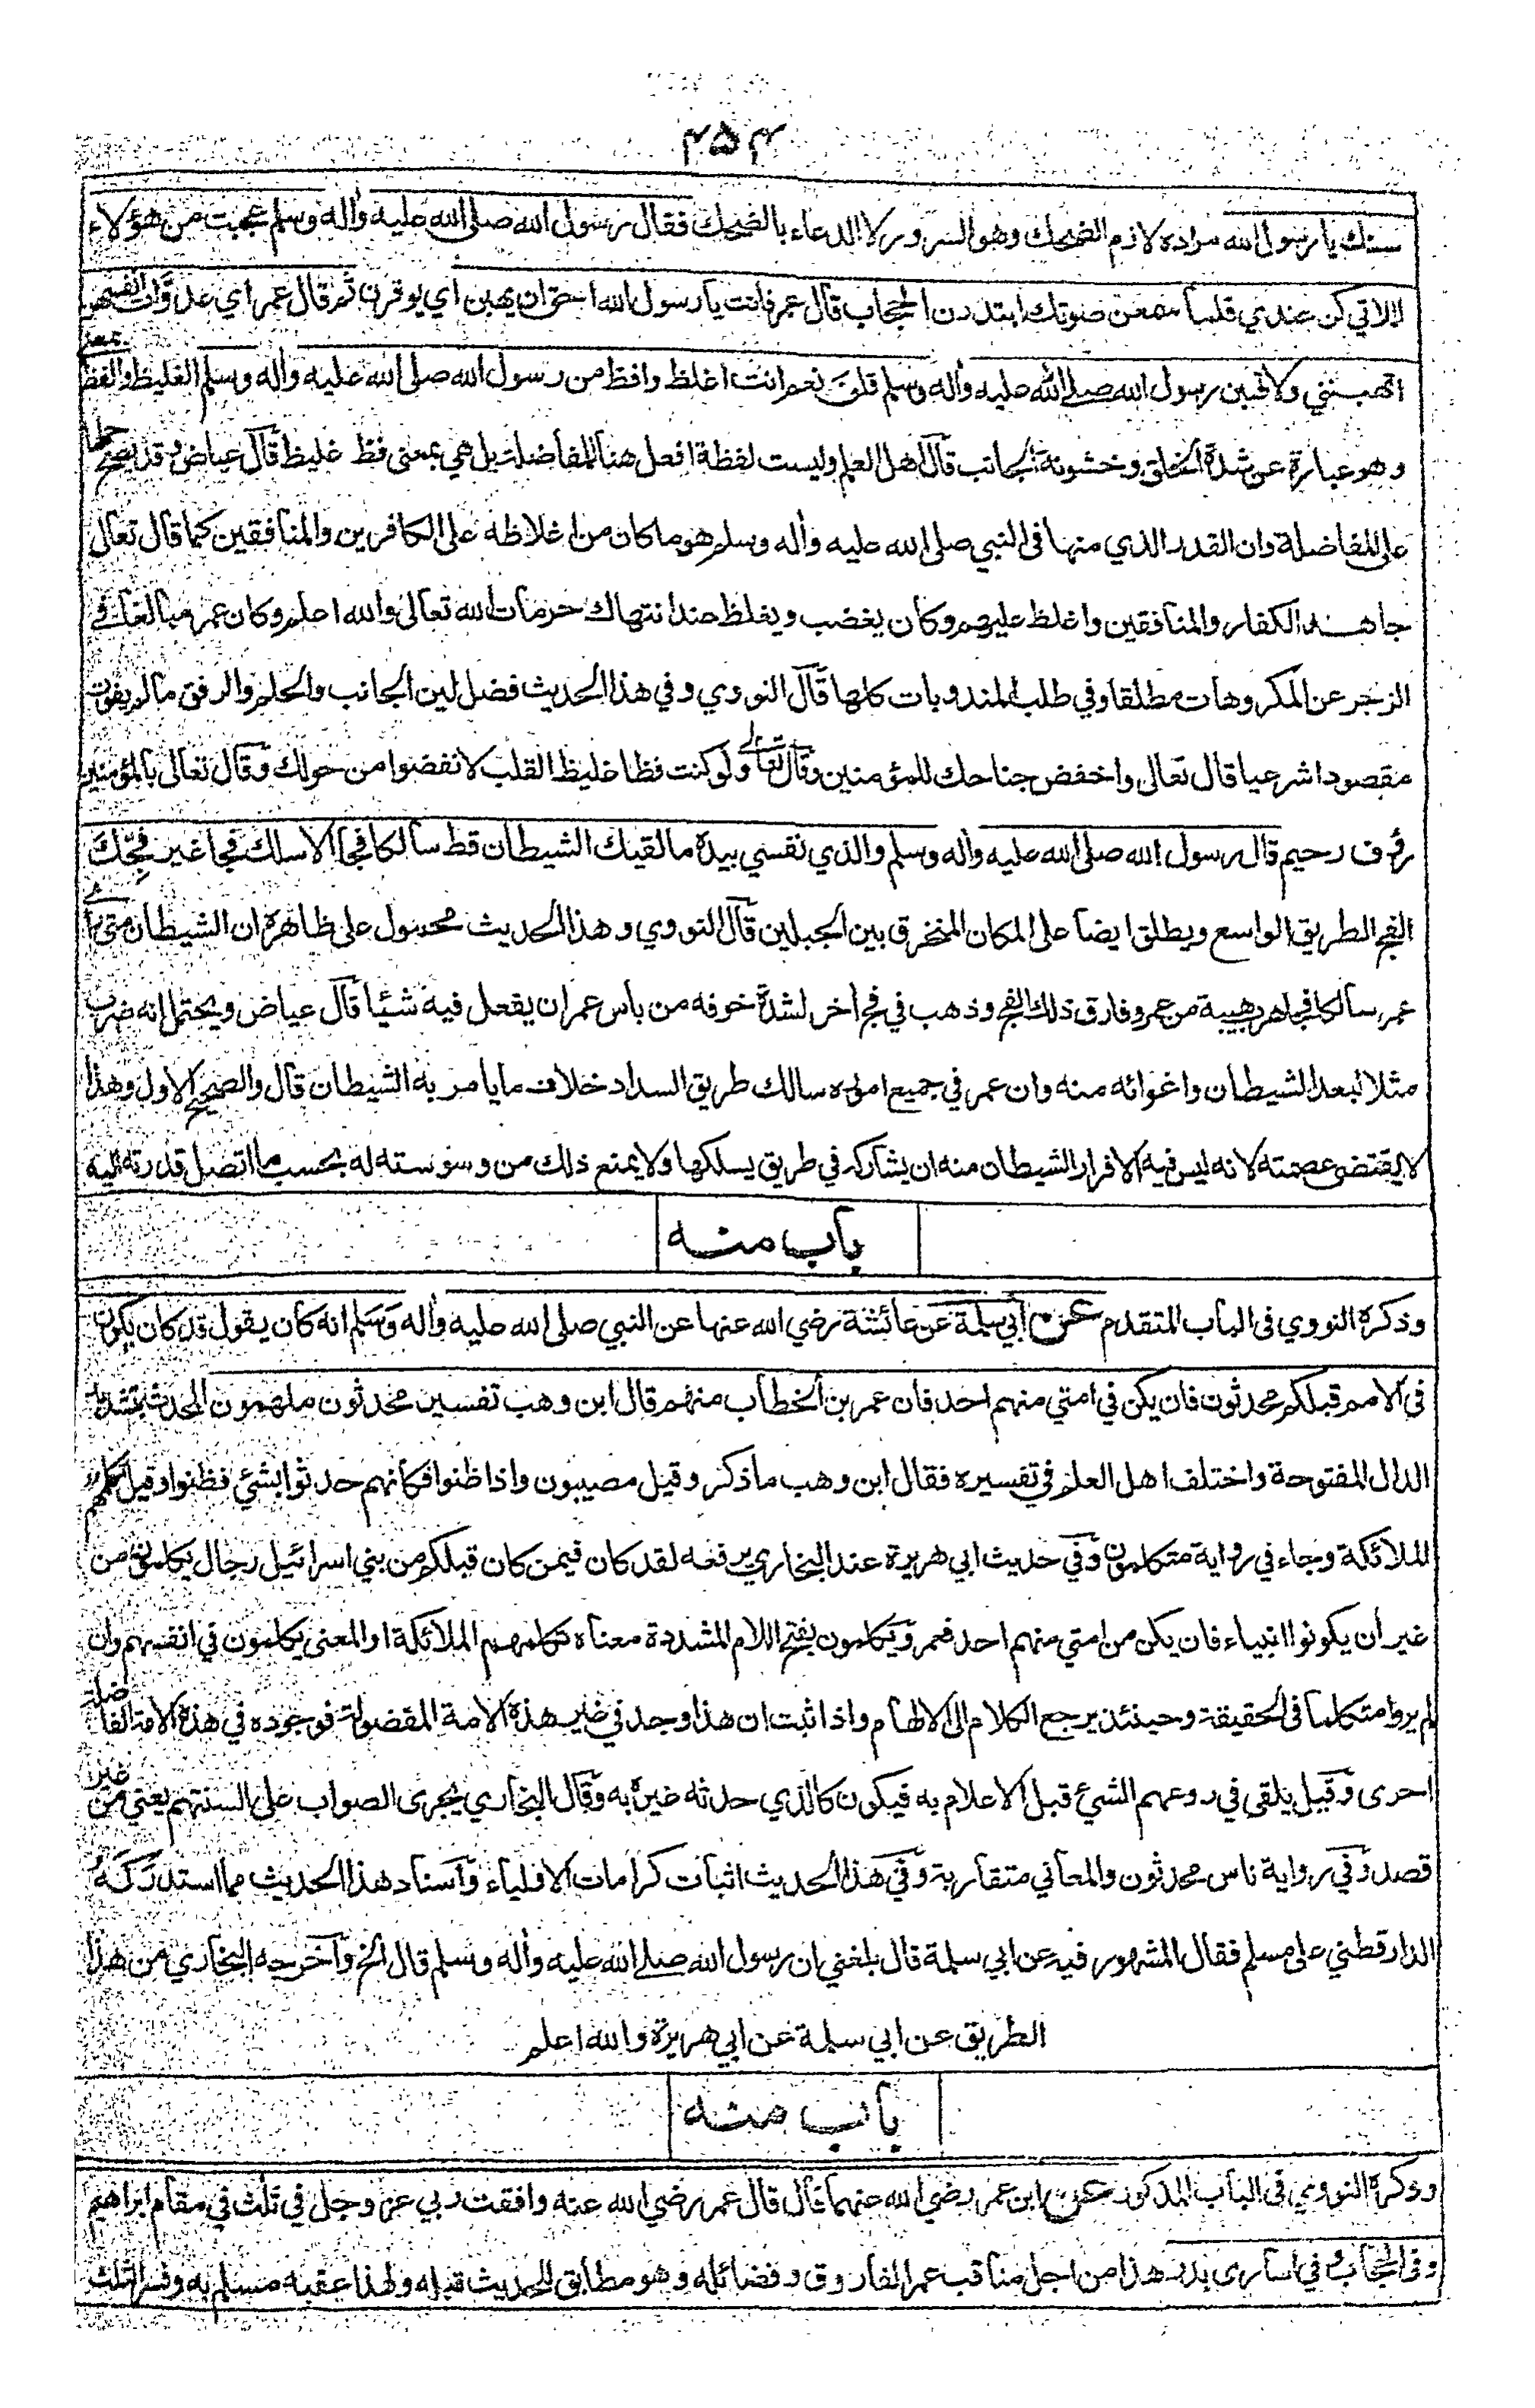 ۴۵۴
سنك يا رسول الله مراده لازم الضحك وهو السرور لا الدعاء بالضحك فقال رسول الله صلى الله عليه وأله وسلم عجبت من هؤلاء
اللاتي كن عندي فلما سمعن صوتك ابتدرن الحجاب قال عمر فانت يا رسول الله احق ان يهبن أي يوقرن ثم قال عمر اي عدوات انفسهن
اتهبنني ولا تهبن رسول الله صلى الله عليه وأله وسلم قلن نعم انت اغلظ وافظ من رسول الله صلى الله عليه وأله وسلم الغليظ والفظ بمعنى
وهو عبارة عن شدة الخلق وخشونة الجانب قال اهل العلم وليست لفظة افعل هنا للمفاضلة بل هي بمعنى فظ غليظ قال عياض وقد يصح حملها
على المفاضلة وان القدر الذي منها فى النبي صلى الله عليه وأله وسلم هو ما كان من اغلاظه على الكافرين والمنافقين كما قال تعالى
جاهد الكفار والمنافقين واغلظ عليهم وكان يغضب ويغلظ عند انتهاك حرمات الله تعالى والله اعلم وكان عمر مبالغا في
الزجر عن المكروهات مطلقا وفي طلب المندوبات كلها قال النووي وفي هذا الحديث فضل لين الجانب والحلم والرفق ما لم يفوت
مقصودا شرعيا قال تعالى واخفض جناحك للمؤمنين وقال تعالى ولو كنت فظا غليظ القلب لانفضوا من حولك وقال تعالى بالمؤمنين
رؤف رحيم قال رسول الله صلى الله عليه وأله وسلم والذي نفسي بيده ما لقيك الشيطان قط سالكا فجا الا سلك فجا غير فجك
الفج الطريق الواسع ويطلق ايضا على المكان المنخرق بين الجبلين قال النووي وهذا الحديث محمول على ظاهره ان الشيطان متى رأى
عمر سالكا فجا هرب هيبة من عمر وفارق ذلك الفج وذهب في فج أخر لشدة خوفه من بأس عمر ان يفعل فيه شيئا قال عياض ويحتمل انه ضرب
مثلا لبعد الشيطان واغوائه منه وان عمر في جميع اموره سالك طريق السداد خلاف ما يامر به الشيطان قال والصحيح الاول وهذا
لا يقتضي عصمته لانه ليس فيه الا فرار الشيطان منه ان يشاركه في طريق يسلكها ولا يمنع ذلك من وسوسته له بحسب ما اتصل قدرته اليه
باب منه
وذكره النووي فى الباب المتقدم عن أبي سلمة عن عائشة رضي الله عنها عن النبي صلى الله عليه وأله وسلم انه كان يقول قد كان يكون
فى الامم قبلكم محدثون فان يكن في امتي منهم احد فان عمر بن الخطاب منهم قال ابن وهب تفسير محدثون ملهمون المحدث بتشديد
الدال المفتوحة واختلف اهل العلم في تفسيره فقال ابن وهب ما ذكر وقيل مصيبون واذا ظنوا فكانهم حدثوا بشئ فظنوا وقيل تكلمهم
الملائكة وجاء في رواية متكلمون وفي حديث ابي هريرة عند البخاري يرفعه لقد كان فيمن كان قبلكم من بني اسرائيل رجال يكلمون من
غير أن يكونوا انبياء فان يكن من امتي منهم احد فعمر ويكلمون بفتح اللام المشددة معناه تكلمهم الملائكة او المعنى يكلمون في انفسهم وان
لم يروا متكلما فى الحقيقة وحينئذ يرجع الكلام الى الالهام واذا ثبت ان هذا وجد في غير هذه الامة المفضولة فوجوده في هذه الامة الفاضلة
احرى وقيل يلقى في روعهم الشئ قبل الاعلام به فيكون كالذي حدثه غيره به وقال البخاري يجرى الصواب على السنتهم يعني من غير
قصد وفي رواية ناس محدثون والمعاني متقاربة وفي هذا الحديث اثبات كرامات الاولياء وأسناد هذا الحديث مما استدركه
الدارقطني على مسلم فقال المشهور فيه عن ابي سلمة قال بلغني ان رسول الله صلى الله عليه وأله وسلم قال الخ وأخرجه البخاري من هذا
الطريق عن ابي سلمة عن ابي هريرة والله اعلم
باب منه
وذكره النووي فى الباب المذكور عن ابن عمر رضي الله عنهما قال قال عمر رضي الله عنه وافقت ربي عز وجل في ثلث في مقام ابراهيم
وفى الحجاب وفي اسارى بدر هذا من اجل مناقب عمر الفاروق وفضائله وهو مطابق للحديث قبله ولهذا عقبه مسلم به وفسر الثلث